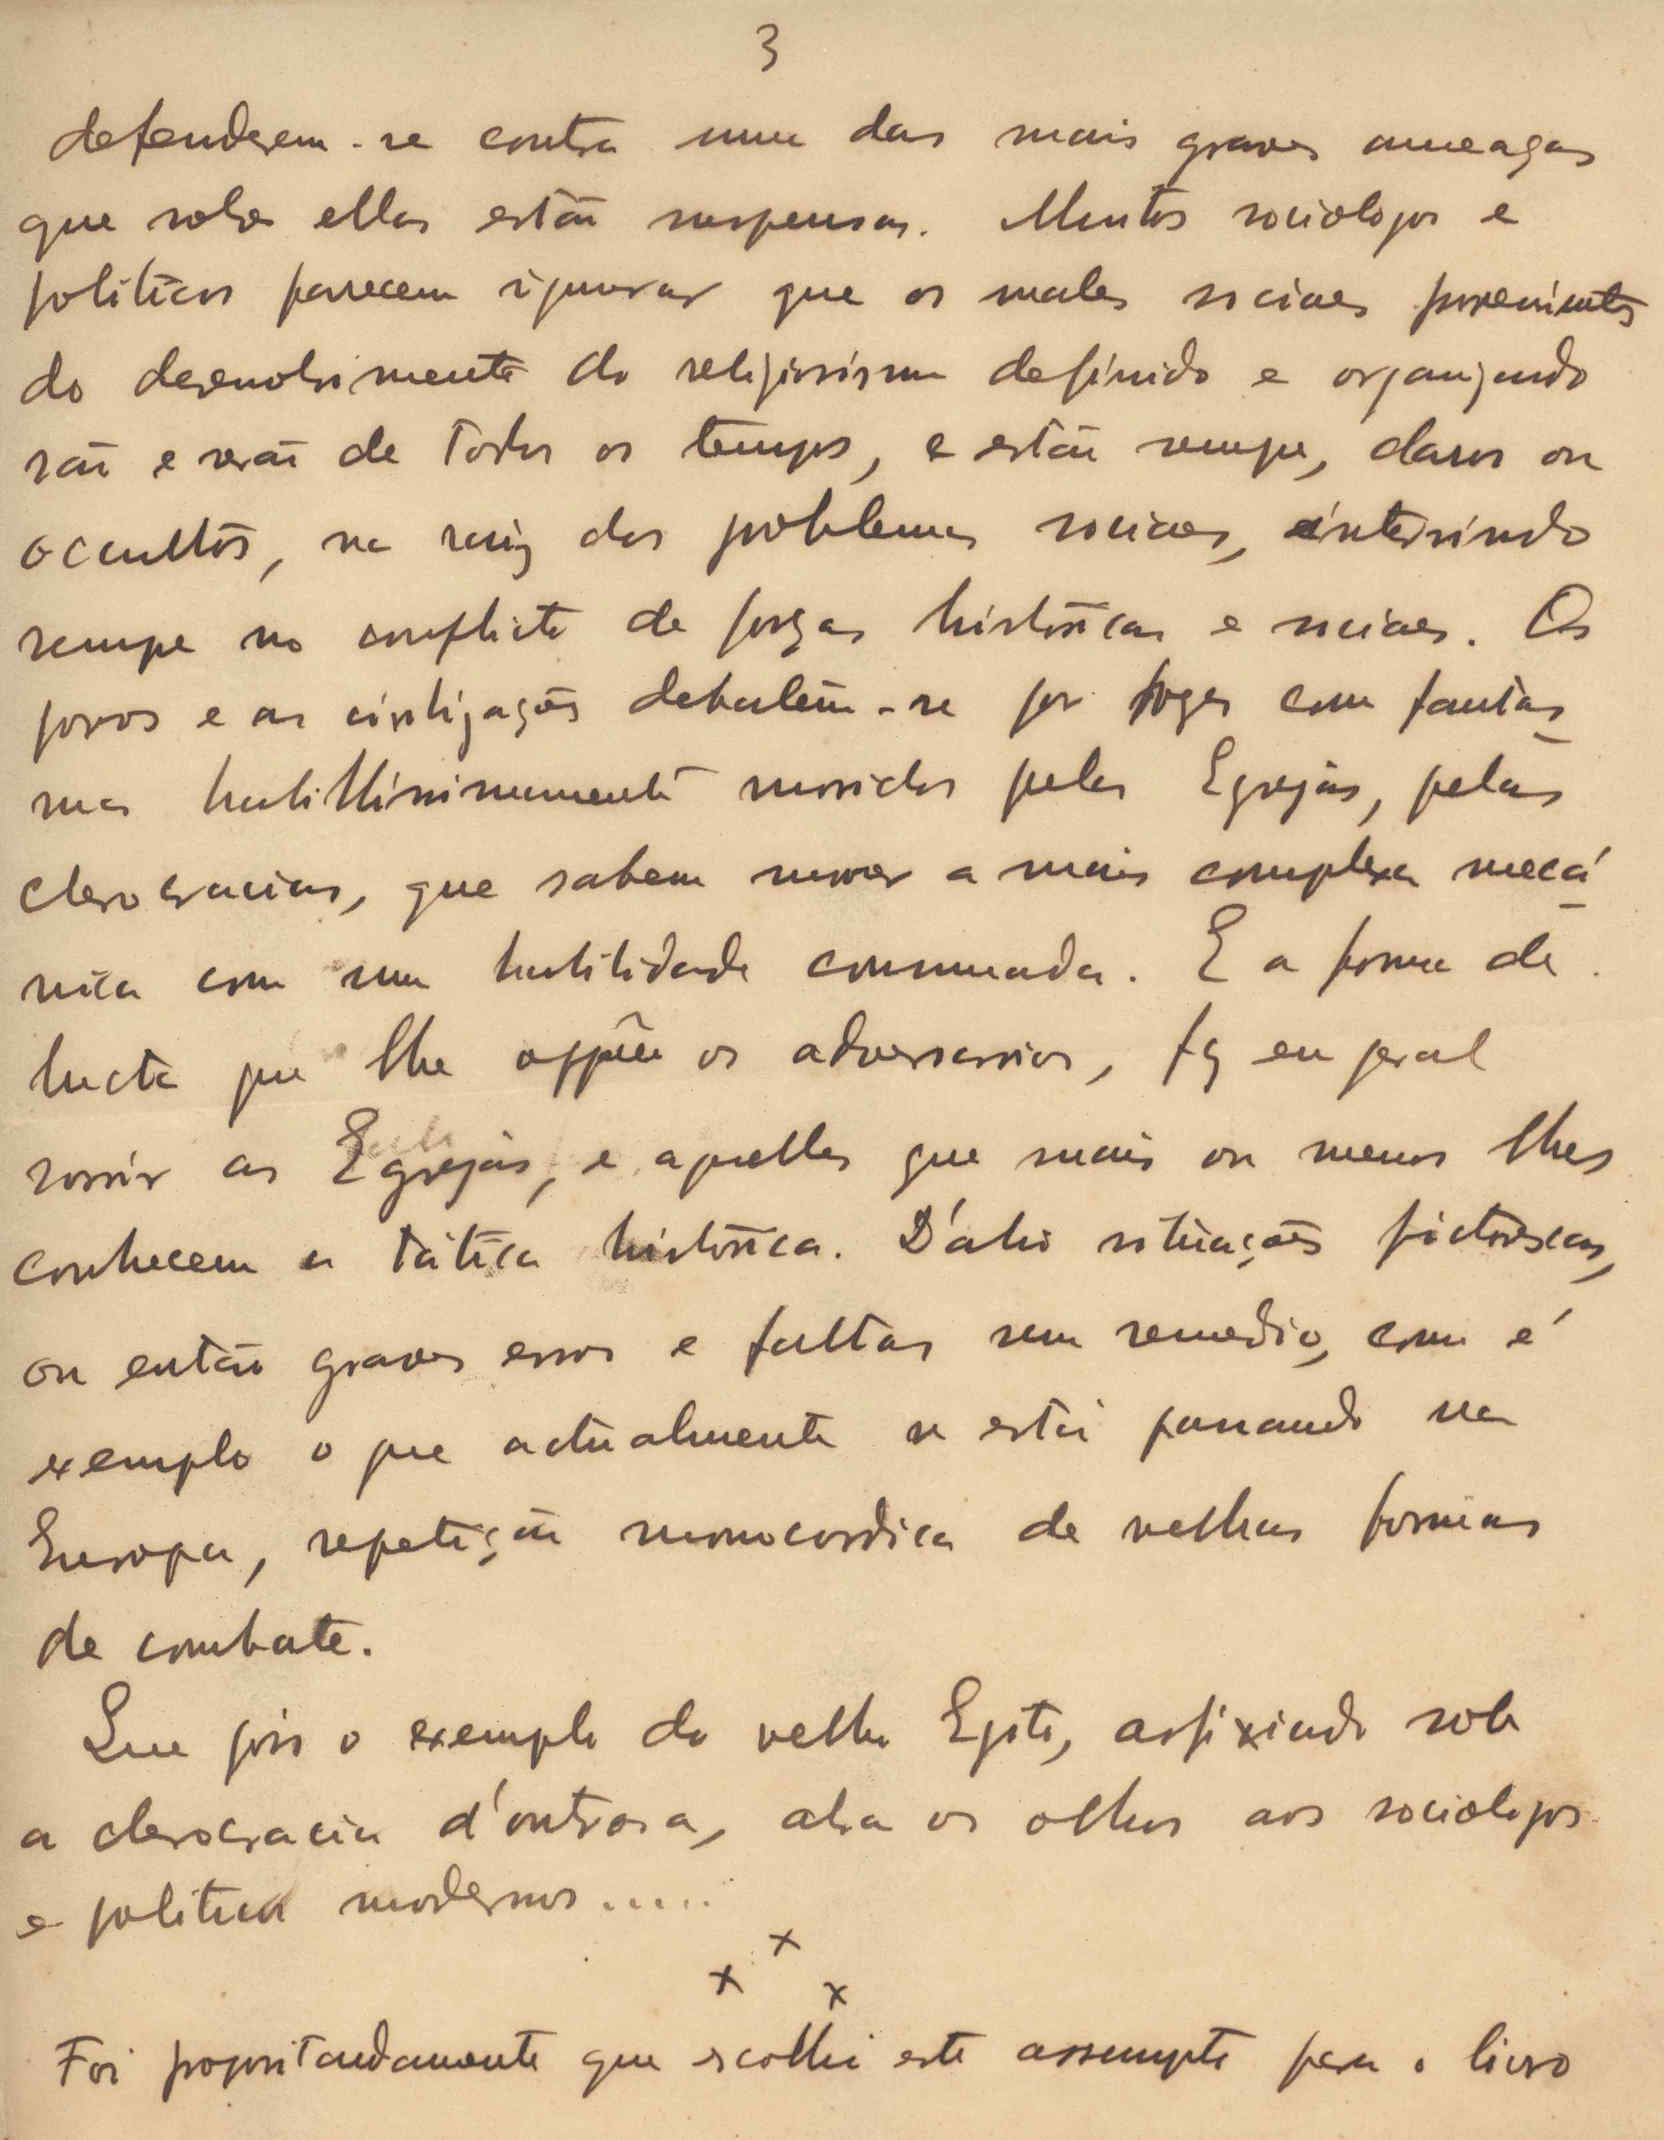 3
defenderem-se contra uma das mais graves ameaças
que sobre ellas estão suspensas. Muitos sociologos e
politicos parecem ignorar que os males sociaes provenientes
do desenvolvimento do religiosismo definido e organizado
são e serão de todos os tempos, e estão sempre, claros ou
occultos, na raiz dos problemas sociaes, intervindo
sempre no conflicto de forças históricas e sociaes. Os
povos e as civilizações debatem-se por vezes com fantas
mas habillissimamente movidos pelas Egrejas, pelas
clerocracias, que sabem mover a mais complexa mecá
nica com uma habilidade consumada. E a forma de
lucta que lhe oppõe os adversarios, faz em geral
sorrir as Egrejas, e aquelles que mais ou menos lhes
conhecem a tática histórica. D'ahi situações pictorescas,
ou então graves erros e faltas sem remedio, como é
exemplo o que actualmente se está passando na
Europa, repetição monocordica de velhas formas
de combate.
Que pois o exemplo do velho Egito, asfixiado sob
a clerocracia d'outrora, abra os olhos aos sociologos
e politicos modernos.....
x x x
Foi propositadamente que escolhi este assumpto para o livro